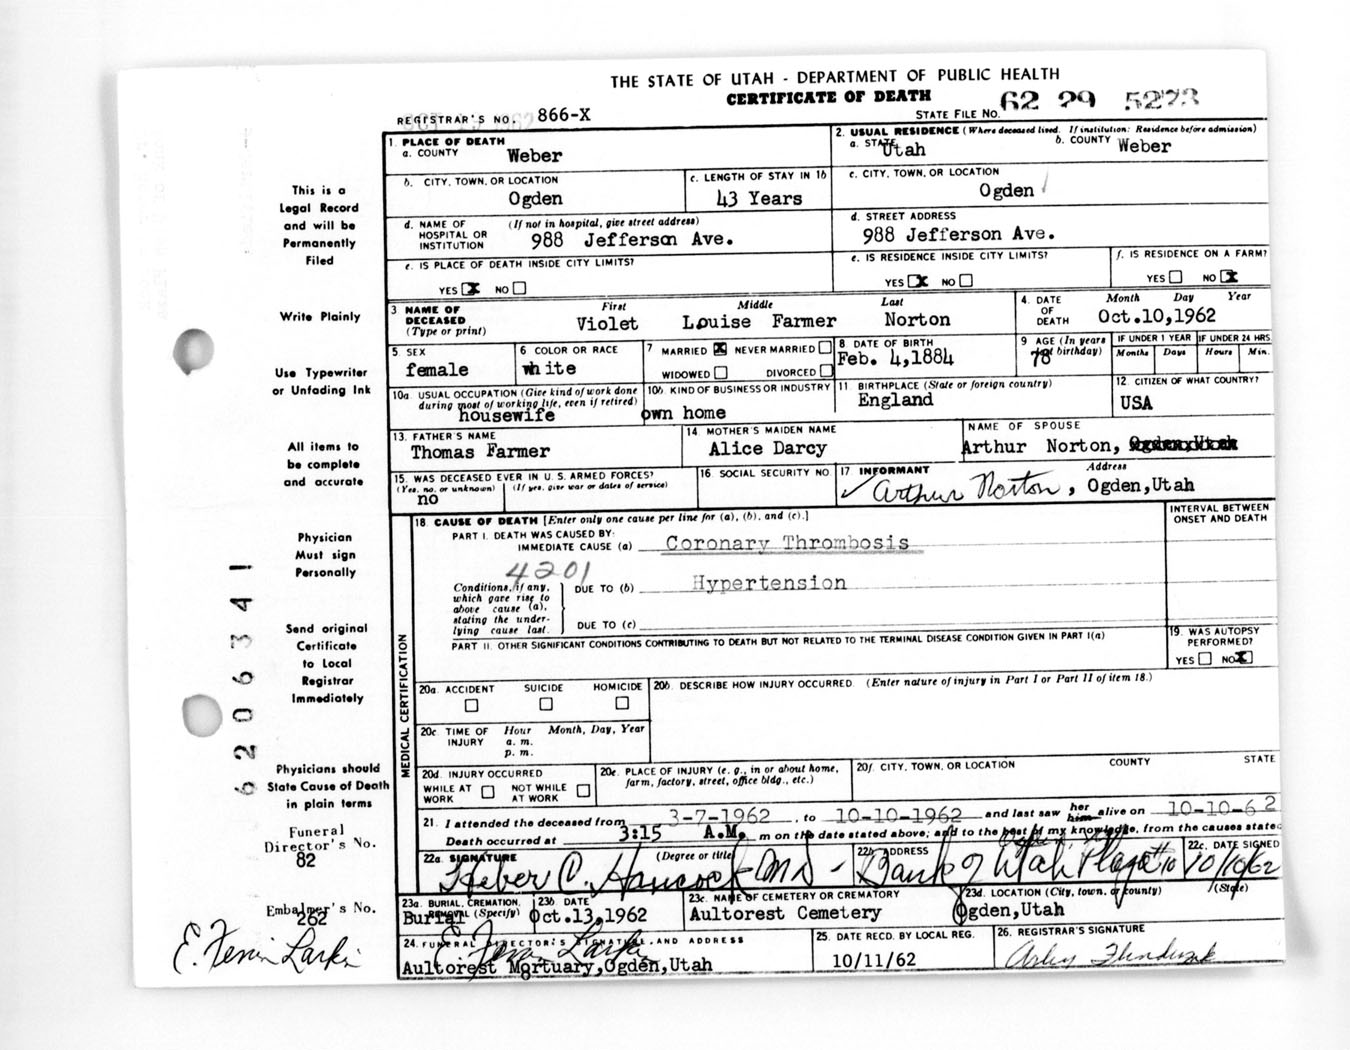 THE STATE OF UTAH - DEPARTMENT OF PUBLIC HEALTH
CERTIFICATE OF DEATH
STATE FILE NO. 62 29 5273
REGISTRAR'S NO. 866-X
1. PLACE OF DEATH
a. COUNTY Weber
2. USUAL RESIDENCE (Where deceased lived. If institution: Residence before admission)
a. STATE Utah b. COUNTY Weber
b. CITY, TOWN, OR LOCATION Ogden
c. LENGTH OF STAY IN 1b 43 Years
c. CITY, TOWN, OR LOCATION Ogden
d. NAME OF HOSPITAL OR INSTITUTION (If not in hospital, give street address) 988 Jefferson Ave.
d. STREET ADDRESS 988 Jefferson Ave.
e. IS PLACE OF DEATH INSIDE CITY LIMITS? YES X NO
e. IS RESIDENCE INSIDE CITY LIMITS? YES X NO
f. IS RESIDENCE ON A FARM? YES NO X
3 NAME OF DECEASED (Type or print) First Middle Last
Violet Louise Farmer Norton
4. DATE OF DEATH Month Day Year
Oct.10,1962
5. SEX female
6 COLOR OR RACE white
7 MARRIED X NEVER MARRIED
WIDOWED DIVORCED
8 DATE OF BIRTH Feb. 4,1884
9 AGE (In years last birthday) 78
IF UNDER 1 YEAR Months Days
IF UNDER 24 HRS. Hours Min.
10a. USUAL OCCUPATION (Give kind of work done during most of working life, even if retired) housewife
10b. KIND OF BUSINESS OR INDUSTRY own home
11 BIRTHPLACE (State or foreign country) England
12 CITIZEN OF WHAT COUNTRY? USA
13. FATHER'S NAME Thomas Farmer
14 MOTHER'S MAIDEN NAME Alice Darcy
NAME OF SPOUSE Arthur Norton,
15. WAS DECEASED EVER IN U. S. ARMED FORCES? (Yes, no, or unknown) (If yes, give war or dates of service) no
16 SOCIAL SECURITY NO
17 INFORMANT Address
Arthur Norton, Ogden,Utah
MEDICAL CERTIFICATION
18 CAUSE OF DEATH [Enter only one cause per line for (a), (b), and (c).]
INTERVAL BETWEEN ONSET AND DEATH
PART I. DEATH WAS CAUSED BY:
IMMEDIATE CAUSE (a) Coronary Thrombosis
4201
Conditions, if any, which gave rise to above cause (a), stating the underlying cause last.
DUE TO (b) Hypertension
DUE TO (c)
PART II. OTHER SIGNIFICANT CONDITIONS CONTRIBUTING TO DEATH BUT NOT RELATED TO THE TERMINAL DISEASE CONDITION GIVEN IN PART I(a)
19. WAS AUTOPSY PERFORMED? YES NO X
20a. ACCIDENT SUICIDE HOMICIDE
20b. DESCRIBE HOW INJURY OCCURRED. (Enter nature of injury in Part I or Part II of item 18.)
20c TIME OF INJURY Hour a. m. p. m. Month, Day, Year
20d. INJURY OCCURRED
WHILE AT WORK NOT WHILE AT WORK
20e. PLACE OF INJURY (e. g., in or about home, farm, factory, street, office bldg., etc.)
20f. CITY, TOWN, OR LOCATION COUNTY STATE
21. I attended the deceased from 3-7-1962, to 10-10-1962 and last saw her him alive on 10-10-62
Death occurred at 3:15 A.M. m on the date stated above; and to the best of my knowledge, from the causes stated
22a. SIGNATURE (Degree or title) Heber C. Hancock MD
22b. ADDRESS Bank of Utah Plaza #10
22c. DATE SIGNED 10/10/62
23a. BURIAL, CREMATION, REMOVAL (Specify) Burial
23b. DATE Oct.13,1962
23c. NAME OF CEMETERY OR CREMATORY Aultorest Cemetery
23d. LOCATION (City, town, or county) (State) Ogden,Utah
24. FUNERAL DIRECTOR'S SIGNATURE, AND ADDRESS
E. Fervin Larkin
Aultorest Mortuary,Ogden,Utah
25. DATE RECD. BY LOCAL REG. 10/11/62
26. REGISTRAR'S SIGNATURE
This is a
Legal Record
and will be
Permanently
Filed
Write Plainly
Use Typewriter
or Unfading Ink
All items to
be complete
and accurate
Physician
Must sign
Personally
Send original
Certificate
to Local
Registrar
Immediately
Physicians should
State Cause of Death
in plain terms
Funeral
Director's No.
82
Embalmer's No.
262
E. Fervin Larkin
6206341